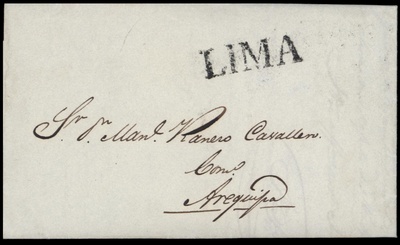 LIMA
Sr. Dn. Manl. Ranero Cavallero.
Com.
Arequipa